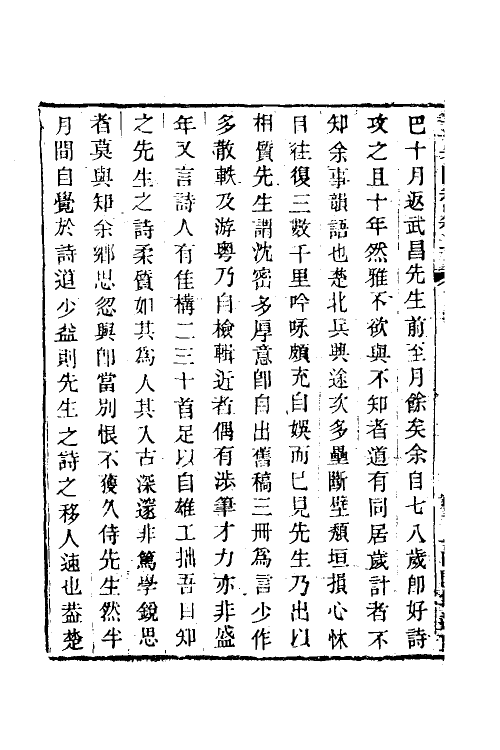 巴十月返武昌先生前至月餘矣余自七八歲卽好詩
攻之且十年然雅不欲與不知者道有同居歲計者不
知余事韻語也楚北兵興途次多壘斷壁頽垣損心怵
目往復三數千里吟咏頗充自娛而已見先生乃出以
相質先生謂沈密多厚意卽自出舊稿三冊爲言少作
多散軼及游粵乃自檢輯近者偶有涉筆才力亦非盛
年又言詩人有佳構二三十首足以自雄工拙吾自知
之先生之詩柔質如其爲人其入古深還非篤學銳思
者莫與知余鄉思忽興卽當別恨不獲久侍先生然半
月間自覺於詩道少益則先生之詩之移人速也葢楚